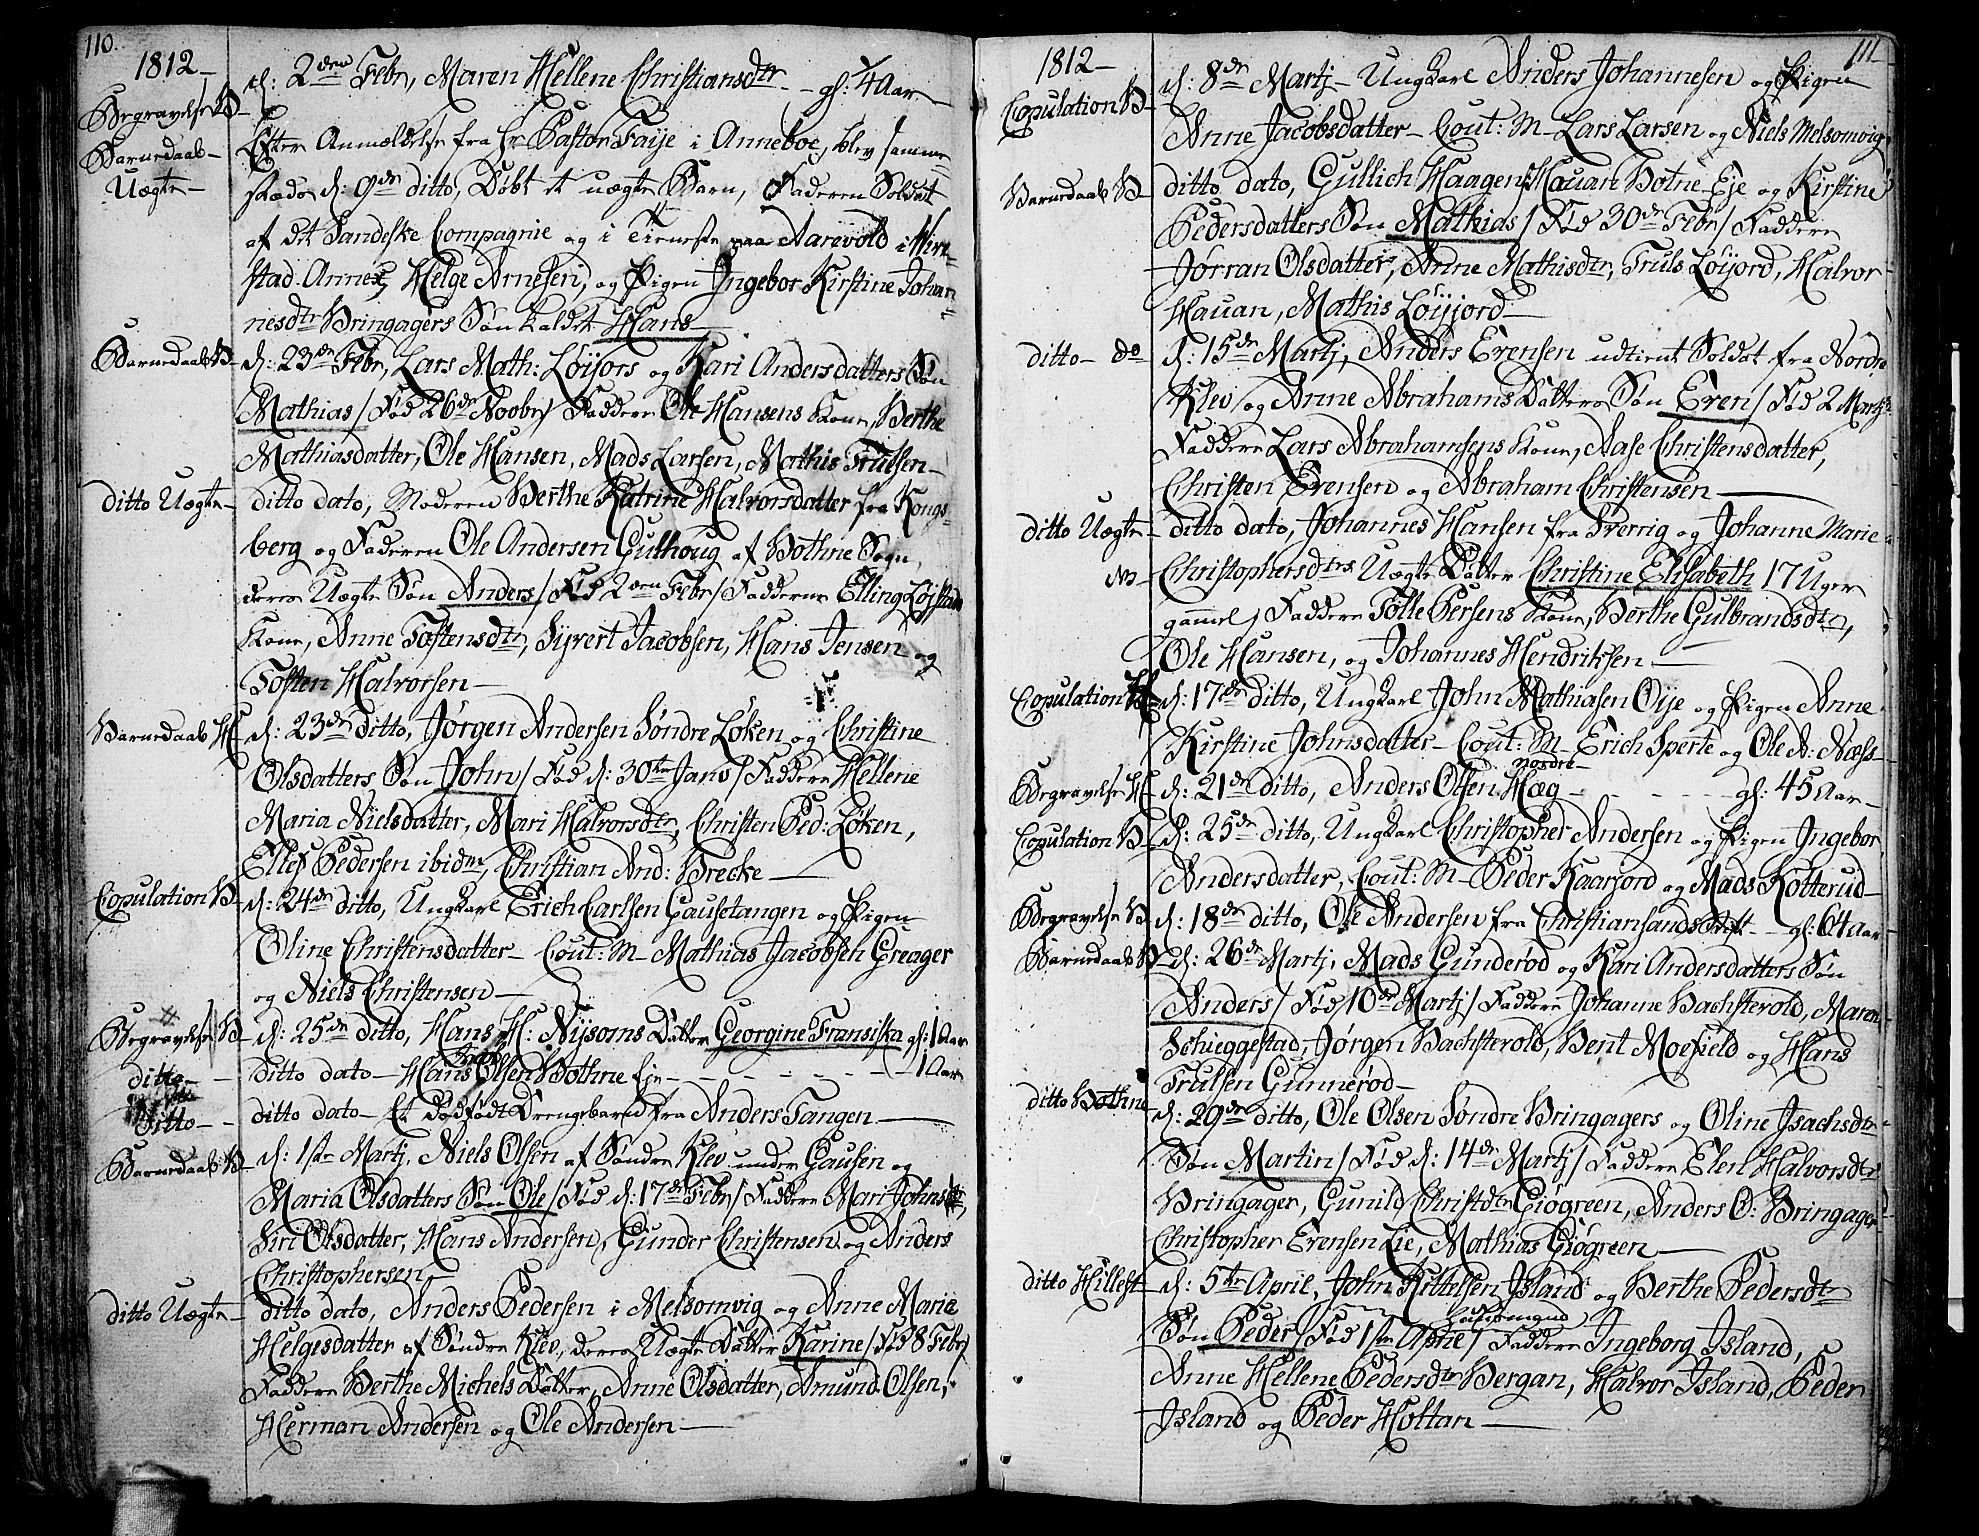 110.
1812 –
Begravelse B – d: 2den Febr, Maren Hellene Christiansdtr – gl: 1/4 Aar
Barnedaab – Efter Anmældelse fra Hr Pastor Faije i Anneboe, blev samme
Uægte – stæds d: 9de ditto, Døbt et uægte Barn, Faderen Soldat
af det Sandeske Compagnie og i Tieneste paa Aarevold i
stad Annex, Helge Arnesen, og Pigen Ingebor Kirstine Johan-
nesdtr Bringagers Søn kaldet Hans –
Barnedaab B – d: 23de Febr, Lars Math: Løijors og Kari Andersdatters Søn
Mathias / Fød 26de Novbr / Faddere Ole Hansens Kone, Berthe
Mathiasdatter, Ole Hansen, Mads Larsen, Mathis Trulsen –
ditto Uægte – ditto dato, Moderen Berthe Katrine Halvorsdatter fra Kongs-
berg og Faderen Ole Andersen Gulhoug af Bothne Sogn,
deres Uægte Søn Anders / Fød 2den Febr / Fadderne Elling Løjstads
Kone, Anne Tostensdtr, Syvert Jacobsen, Hans Jensen og
Tosten Halvorsen –
Barnedaab H – d: 23de ditto, Jørgen Andersen Søndre Løken og Christine
Olsdatters Søn John / Fød d: 30te Janv / Faddere Hellene
Maria Nielsdatter, Mari Halvorsdtr, Christen Ped: Løken,
Ellef Pedersen ibidm, Christian And: Brecke –
Copulation B – d: 24de ditto, Ungkarl Erich Carlsen Gausetangen og Pigen
Oline Christensdatter – Cout: M – Mathias Jacobsen Greager
og Niels Christensen –
Begravelse B – d: 25de ditto, Hans H: Nysoms Datter Georgine Fransiska gl: 1 Aar
ditto – ditto dato – Hans Olsen Bothne Eje – – – 1 Aar
Ditto – – ditto dato – Et dødfødt Drengebarn fra Anders Tangen –
Barnedaab B – d: 1ste Martj, Niels Olsen af Søndre Klev under Gausen og
Maria Olsdatters Søn Ole / Fød d: 17de Febr / Faddere Mari Johnsdtr,
Siri Olsdatter, Hans Andersen, Gunder Christensen og Anders
Christophersen –
ditto Uægte – ditto dato, Anders Pedersen i Melsomvig og Anne Maria
Helgesdatter af Søndre Klev, deres Uægte Datter Karine / Fød 8 Febr /
Faddere Berthe Michels Datter, Anne Olsdatter, Amund Olsen,
Herman Andersen og Ole Andersen –
111
1812 –
Copulation B – d: 8de Martj – Ungkarl Anders Johannesen og Pigen
Anne Jacobsdatter – Cout: M – Lars Larsen og Niels Melsomvig
Barnedaab B – ditto dato, Gullich Haagens Hauan Botne Eje og Kirstine
Pedersdatters Søn Mathias / Fød 30de Febr / Faddere
Jørran Olsdatter, Anne Mathisdtr, Truls Løijord, Halvor
Hauan, Mathis Løijord –
ditto – do d: 15de Martj, Anders Erensen udtient Soldat fra Nordre
Klev og Anne Abrahams Datters Søn Eren / Fød 2 Martj /
Faddere Lars Abrahamsens Kone, Aase Christensdatter,
Christen Erensen og Abraham Christensen –
ditto Uægte – ditto dato, Johannes Hansen fra Sverrig og Johanne Marie
Christophersdtrs Uægte Datter Christine Elisabeth 17 Uger
gammel, Faddere Tolle Persens Kone, Berthe Gulbrandsdtr,
Ole Hansen, og Johannes Hendriksen –
Copulation H – d: 17de ditto, Ungkarl John Mathiasen Oije og Pigen Anne
Kirstine Johnsdatter – Cout: M – Erich Sperte og Ole A: Næss –
Nordre
Begravelse H – d: 21de ditto, Anders Olsen Hæg – – – gl: 45 Aar –
Copulation B – d: 25de ditto, Ungkarl Christopher Andersen og Pigen Ingebor
Andersdatter, Cout: M – Peder Kaarjord og Mads Kotterud –
Begravelse B – d: 18de ditto, Ole Andersen fra Christiansands Stift – gl: 64 Aar –
Barnedaab B – d: 26de Martj, Mads Gunderød og Kari Andersdatters Søn
Anders / Fød 10de Martj / Faddere Johanne Bachsterold, Maren
Schieggestad, Jørgen Bachsterold, Bent Moefield og Hans
Trulsen Gunnerød –
ditto Bothne d: 29de ditto, Ole Olsen Søndre Bringagers og Oline Isachsdtrs
Søn Martin / Fød d: 14de Martj / Faddere Elen Halvorsdtr
Bringager, Gunild Christdtr Giøgreen, Anders O: Bringager
Christopher Erensen Lie, Mathias Giøgreen –
ditto Hillest – d: 5te April, John Kittelsen Island og Berthe Pedersdtrs
Søn Peder / Fød 1ste Aprie / Faddere Ingeborg Island,
Anne Hellene Pedersdtr Bergan, Halvor Island, Peder
Island og Peder Hottan –